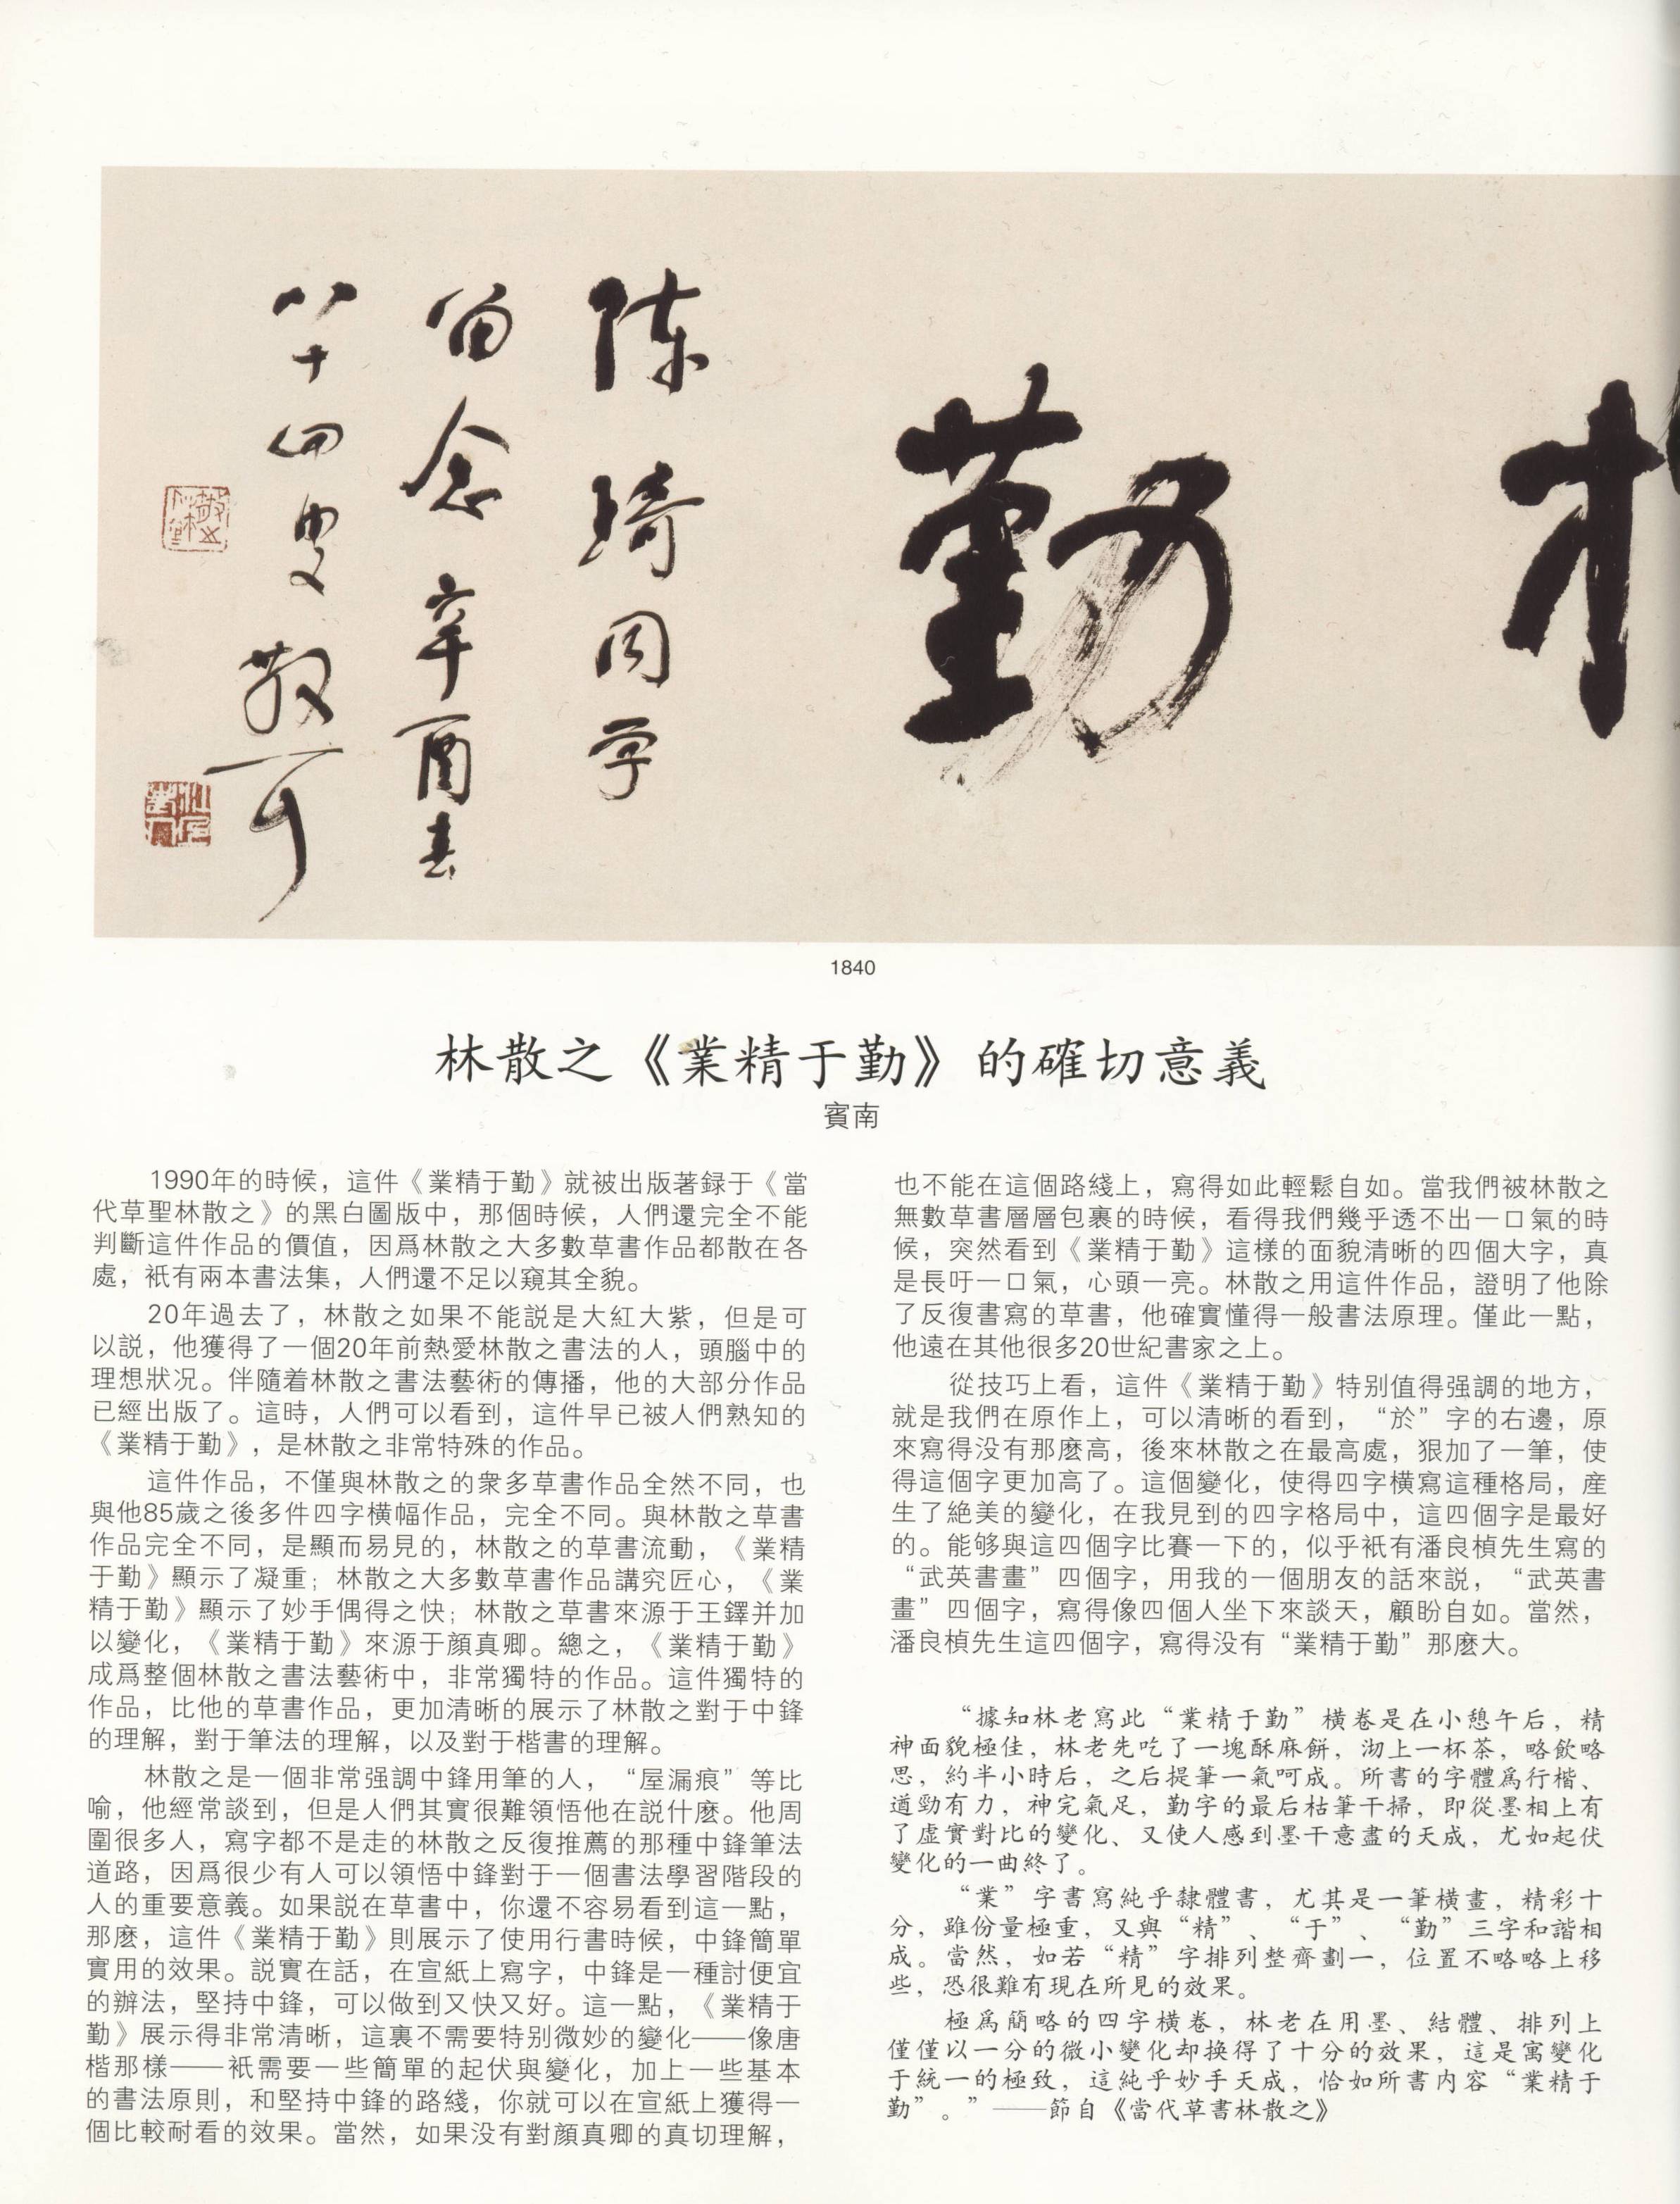 勤
陳琦同学
留念 辛酉春
八十四叟 散耳
1840
林散之《業精于勤》的確切意義
賓南
1990年的時候，這件《業精于勤》就被出版著録于《當
代草聖林散之》的黑白圖版中，那個時候，人們還完全不能
判斷這件作品的價值，因爲林散之大多數草書作品都散在各
處，衹有兩本書法集，人們還不足以窺其全貌。
20年過去了，林散之如果不能説是大紅大紫，但是可
以説，他獲得了一個20年前熱愛林散之書法的人，頭腦中的
理想狀況。伴隨着林散之書法藝術的傳播，他的大部分作品
已經出版了。這時，人們可以看到，這件早已被人們熟知的
《業精于勤》，是林散之非常特殊的作品。
這件作品，不僅與林散之的衆多草書作品全然不同，也
與他85歲之後多件四字横幅作品，完全不同。與林散之草書
作品完全不同，是顯而易見的，林散之的草書流動，《業精
于勤》顯示了凝重；林散之大多數草書作品講究匠心，《業
精于勤》顯示了妙手偶得之快；林散之草書來源于王鐸并加
以變化，《業精于勤》來源于顔真卿。總之，《業精于勤》
成爲整個林散之書法藝術中，非常獨特的作品。這件獨特的
作品，比他的草書作品，更加清晰的展示了林散之對于中鋒
的理解，對于筆法的理解，以及對于楷書的理解。
林散之是一個非常强調中鋒用筆的人，“屋漏痕”等比
喻，他經常談到，但是人們其實很難領悟他在説什麽。他周
圍很多人，寫字都不是走的林散之反復推薦的那種中鋒筆法
道路，因爲很少有人可以領悟中鋒對于一個書法學習階段的
人的重要意義。如果説在草書中，你還不容易看到這一點，
那麽，這件《業精于勤》則展示了使用行書時候，中鋒簡單
實用的效果。説實在話，在宣紙上寫字，中鋒是一種討便宜
的辦法，堅持中鋒，可以做到又快又好。這一點，《業精于
勤》展示得非常清晰，這裏不需要特别微妙的變化——像唐
楷那樣——衹需要一些簡單的起伏與變化，加上一些基本
的書法原則，和堅持中鋒的路綫，你就可以在宣紙上獲得一
個比較耐看的效果。當然，如果没有對顔真卿的真切理解，
也不能在這個路綫上，寫得如此輕鬆自如。當我們被林散之
無數草書層層包裹的時候，看得我們幾乎透不出一口氣的時
候，突然看到《業精于勤》這樣的面貌清晰的四個大字，真
是長吁一口氣，心頭一亮。林散之用這件作品，證明了他除
了反復書寫的草書，他確實懂得一般書法原理。僅此一點，
他遠在其他很多20世紀書家之上。
從技巧上看，這件《業精于勤》特别值得强調的地方，
就是我們在原作上，可以清晰的看到，“於”字的右邊，原
來寫得没有那麽高，後來林散之在最高處，狠加了一筆，使
得這個字更加高了。這個變化，使得四字横寫這種格局，産
生了絶美的變化，在我見到的四字格局中，這四個字是最好
的。能够與這四個字比賽一下的，似乎衹有潘良楨先生寫的
“武英書畫”四個字，用我的一個朋友的話來説，“武英書
畫”四個字，寫得像四個人坐下來談天，顧盼自如。當然，
潘良楨先生這四個字，寫得没有“業精于勤”那麽大。
“據知林老寫此“業精于勤”横卷是在小憩午后，精
神面貌極佳，林老先吃了一塊酥麻餅，沏上一杯茶，略飲略
思，約半小時后，之后提筆一氣呵成。所書的字體爲行楷、
遒勁有力，神完氣足，勤字的最后枯筆干掃，即從墨相上有
了虚實對比的變化、又使人感到墨干意盡的天成，尤如起伏
變化的一曲終了。
“業”字書寫純乎隸體書，尤其是一筆横畫，精彩十
分，雖份量極重，又與“精”、“于”、“勤”三字和諧相
成。當然，如若“精”字排列整齊劃一，位置不略略上移
些，恐很難有現在所見的效果。
極爲簡略的四字横卷，林老在用墨、結體、排列上
僅僅以一分的微小變化却换得了十分的效果，這是寓變化
于統一的極致，這純乎妙手天成，恰如所書内容“業精于
勤”。”——節自《當代草書林散之》